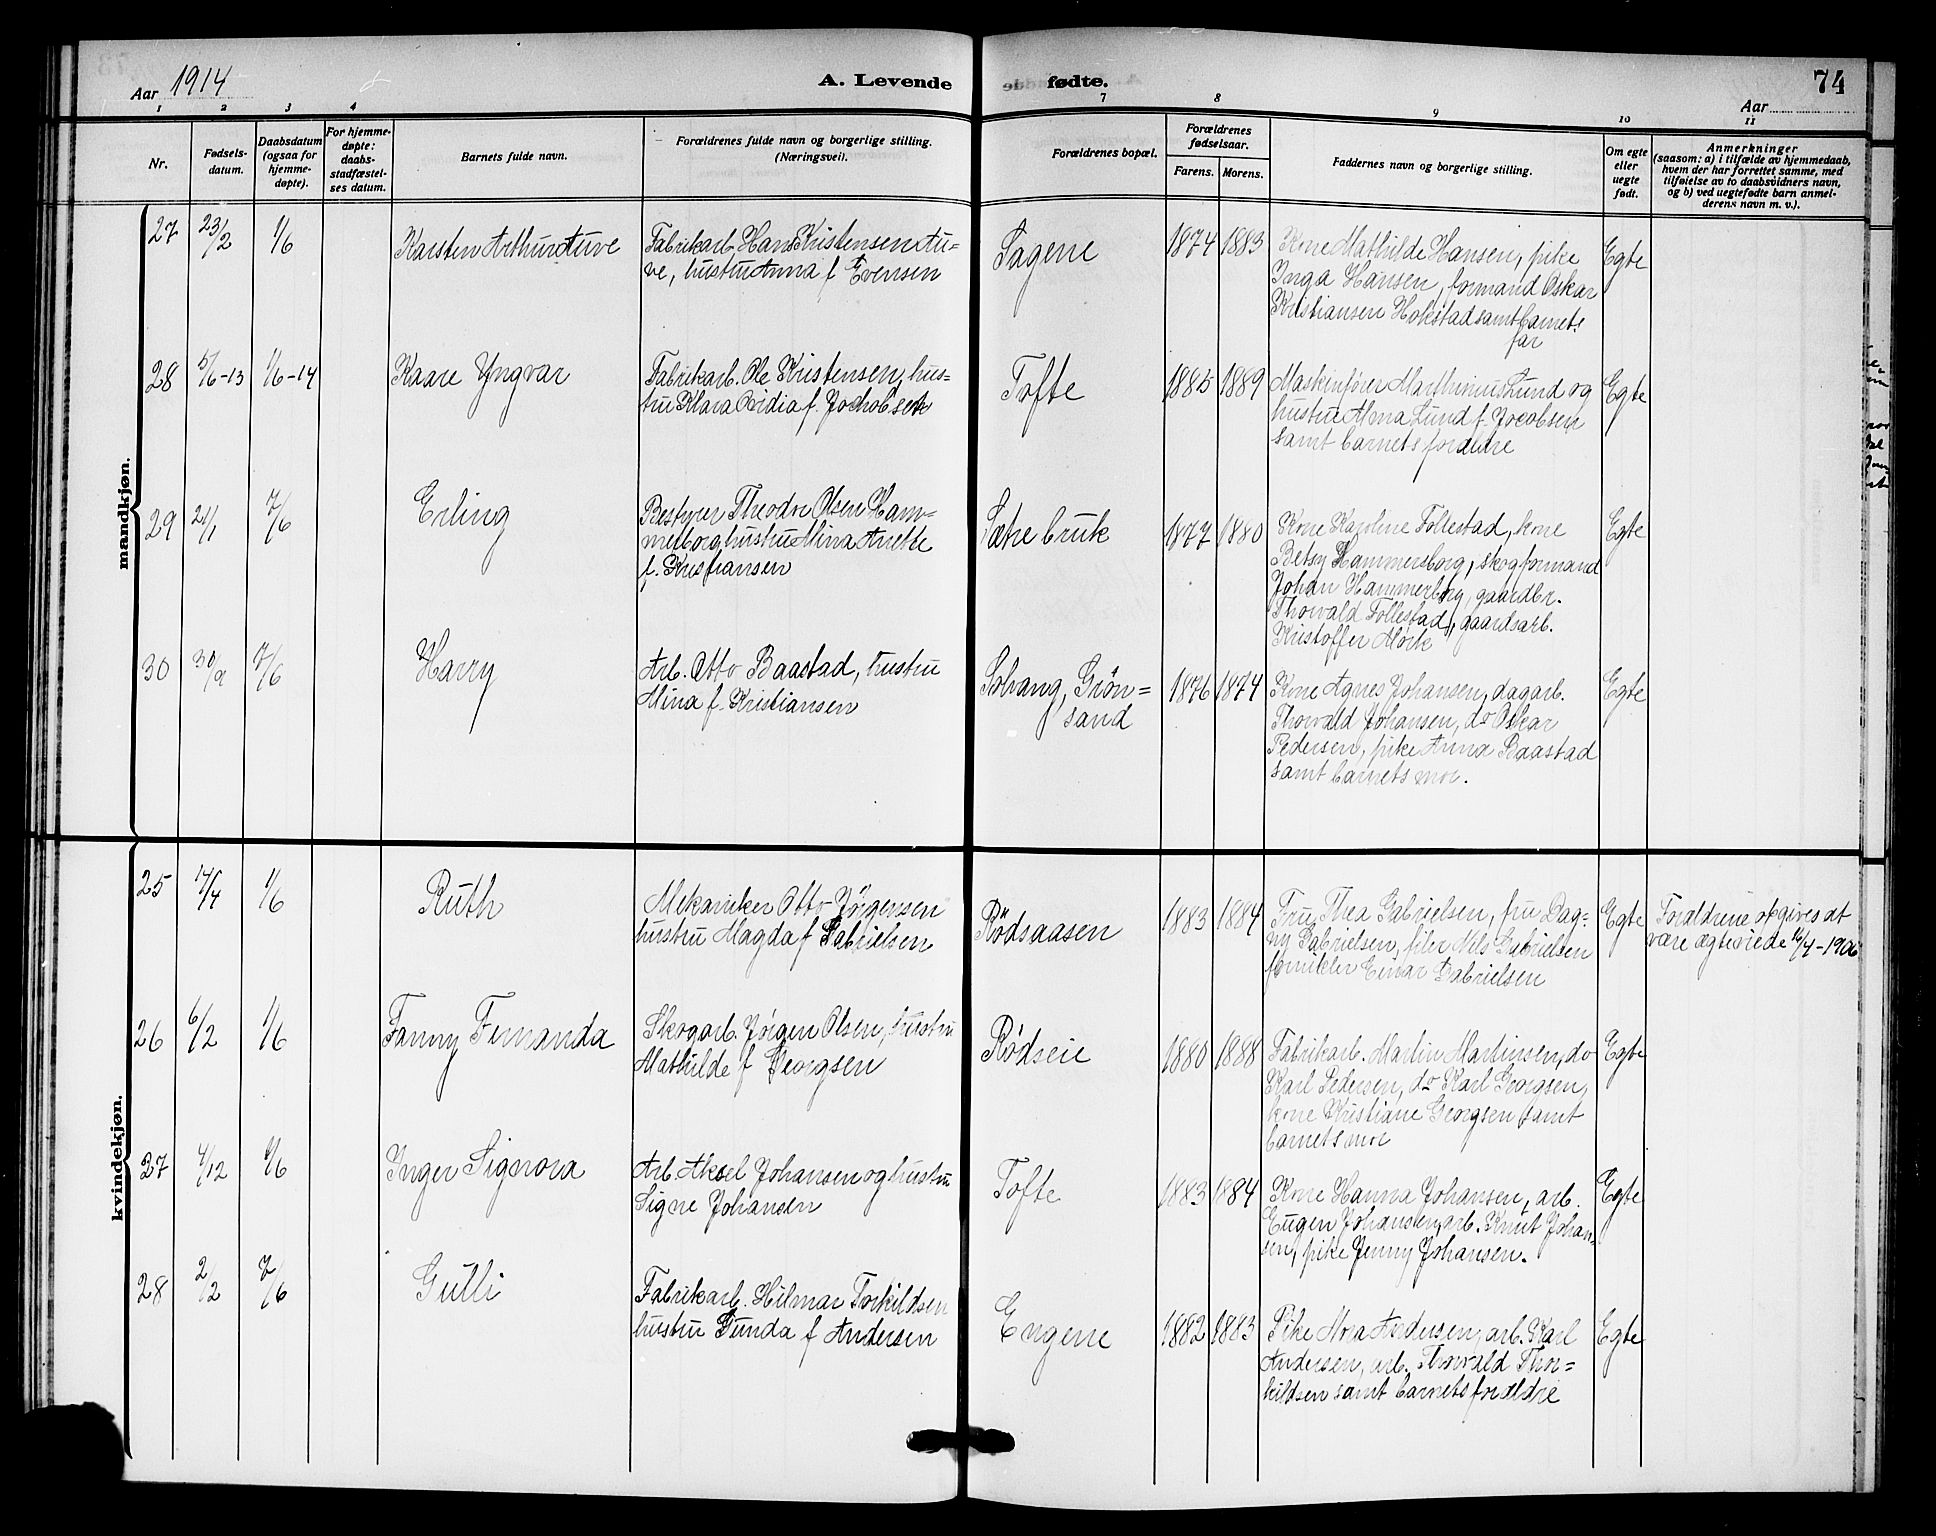 1914
Aar
A. Levende
fødte.
74
Aar
1 2 3 4 7 8 9 10 11
Nr.
Fødsels-
datum.
Daabsdatum
(ogsaa for
hjemme-
døpte).
For hjemme-
døpte:
daabs-
stadfæstel-
ses datum.
Barnets fulde navn.
Forældrenes fulde navn og borgerlige stilling.
(Næringsvei).
Forældrenes bopæl.
Forældrenes
fødselsaar.
Farens. Morens.
Faddernes navn og borgerlige stilling.
Om egte
eller
uegte
født.
Anmerkninger
(saasom: a) i tilfælde av hjemmedaab,
hvem der har forrettet samme, med
tilføielse av to daabsvidners navn,
og b) ved uegtefødte barn anmel-
derens navn m. v.).
mandkjøn.
27 23/2 1/6 Karsten Arthur Auve
Fabrikarb. Hans Kristensen Au-
ve, hustru Anna f Evensen
Sagene
1874 1883
Kone Mathilde Hansen, pike
Inga Hansen, formand Oskar
Kristiansen Hokstad samt barnets
far
Egte
28 5/6-13 1/6-14 Kaare Yngvar
Fabrikarb. Ole Kristensen, hus-
tru Klara Ovidia f. Jachobsen
Tofte
1885 1889
Maskinfører Marthinius Lund og
hustru Alma Lund f. Jocobsen
samt barnets foreldre
Egte
29 21/1 7/6 Erling
Bestyrer Theodor Olsen Ham-
merborg, hustru Mina Anette
f. Kristiansen
Sætre bruk
1877 1880
Kone Karoline Follestad, kone
Betsy Hammersborg, skogformand
Johan Hammerborg, gaardbr.
Thorvald Follestad, gaardsarb.
Kristoffer Mørk
Egte
30 30/9 7/6 Harry
Arb. Otto Baastad, hustru
Mina f. Kristiansen
Solvang, Grøn=
sand
1876 1874
Kone Agnes Johansen, dagarb.
Thorvald Johansen, do Oskar
Pedersen, pike Anna Baastad
samt barnets mor.
Egte
kvindekjøn.
25 17/4 1/6 Ruth
Mekaniker Otto Jørgensen
hustru Magda f Gabrielsen
Rødsaasen
1883 1884
Fru Thea Gabrielsen, fru Dag-
ny Gabrielsen, filer Nils Gabrielsen
Einar Gabrielsen
Egte
Foraldrene opgives at
være ægteviede 16/4-1906
26 6/2 1/6 Fanny Fernanda
Skogarb. Jørgen Olsen, hustru
Mathilde f Georgsen
Rødseie
1880 1888
Fabrikarb. Martin Martinsen, do
Karl Pedersen, do Karl Georgsen,
kone Kristiane Georgsen samt
barnets mor
Egte
27 4/12 1/6 Inger Signora
Arb. Aksel Johansen og hustru
Signe Johansen
Tofte
1883 1884
Kone Hanna Johansen, arb.
Eugen Johansen, arb. Knut Johan-
sen, pike Jenny Johansen.
Egte
28 2/2 7/6 Gulli
Fabrikarb. Hilmar Torkildsen
hustru Gunda f Andersen
Engene
1882 1883
Pike Mova Andersen, arb. Karl
Andersen, arb. Thorvald Thor=
kildsen samt barnets forældre
Egte